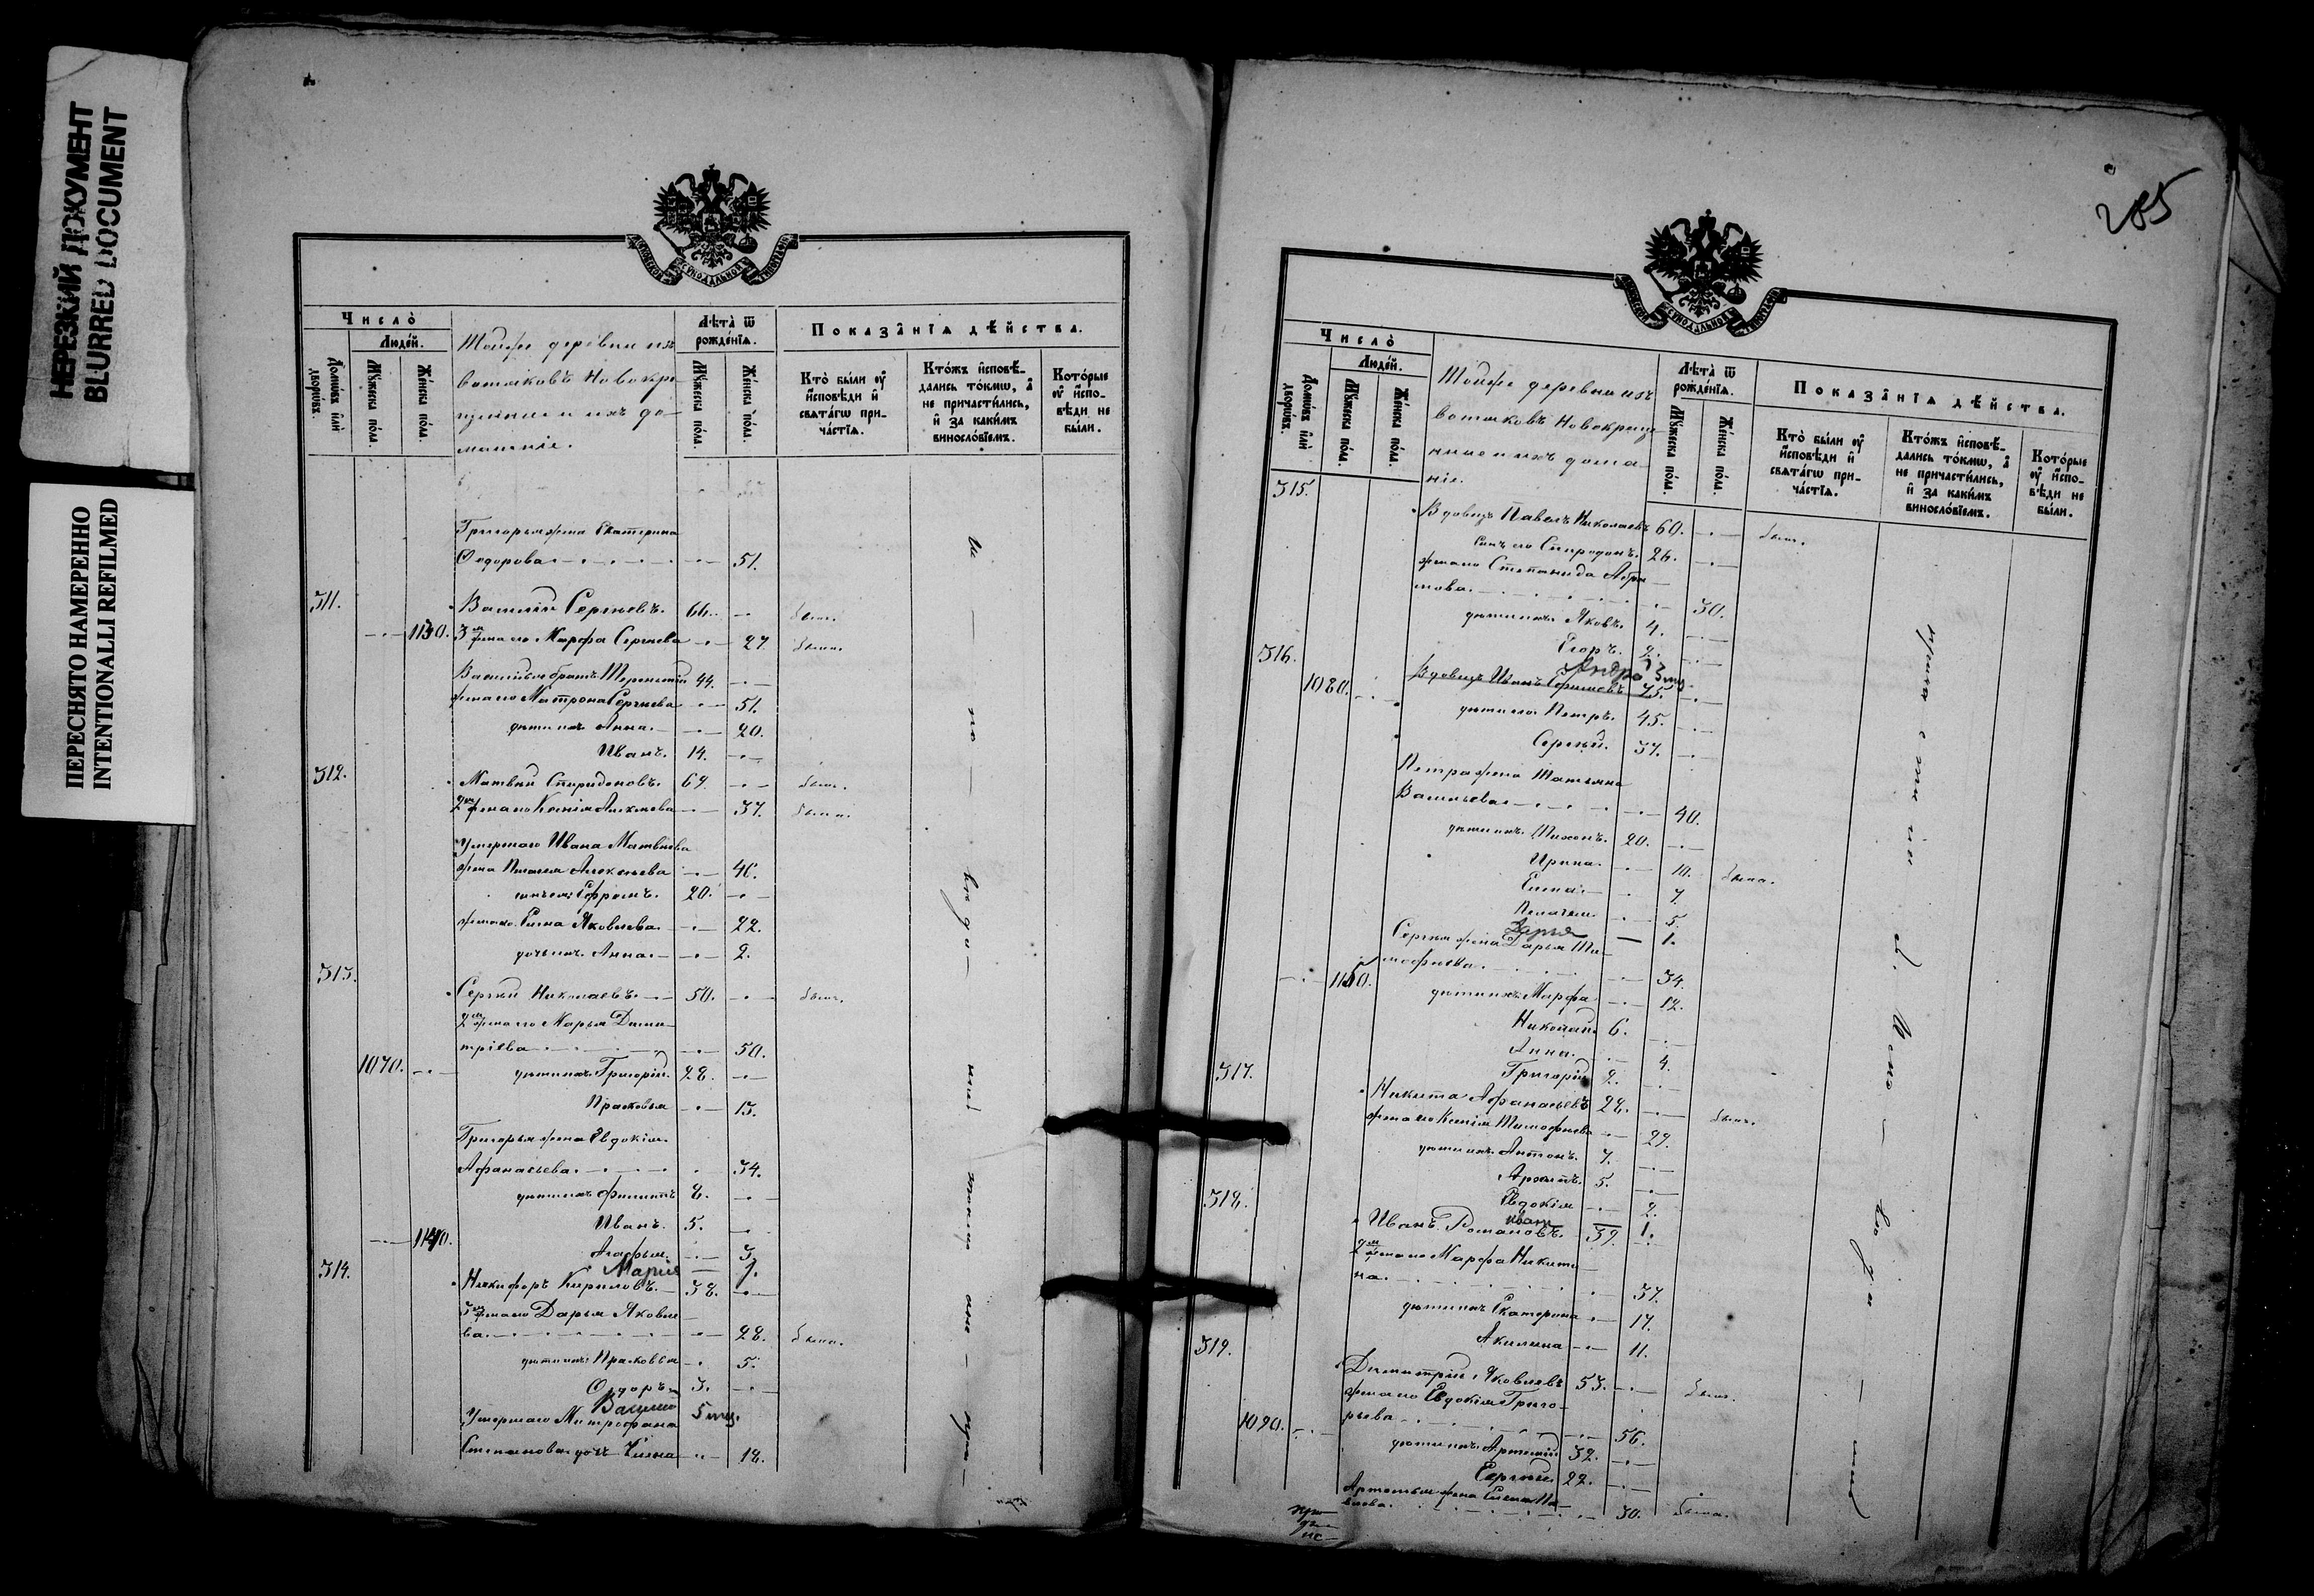 НЕРЕЗКИЙ ДОКУМЕНТ
BLURRED DOCUMENT
ПЕРЕСНЯТО НАМЕРЕННО
INTENTIONALLI REFILMED
МОСКОВСКОЙ СѴНОДАЛЬНОЙ ТИПОГРАФІИ
Число̀
Людей.
Домѡвъ или дворѡвъ.
Мꙋжеска пола.
Женска пола.
Тойже деревни изъ
вотяковъ Новокре
щенные и ихъ до-
машніе.
Лѣта ѿ рожденїя.
Мꙋжеска пола.
Женска пола.
Показанїѧ дѣйства.
Кто были оу исповѣди и свѧтагѡ причастїѧ.
Ктожъ исповѣдались токмѡ, а не причастились, и за какимъ винословїемъ.
Которые оу исповѣди не были.
Григорья жена Екатерина
Ѳедорова 51.
311. Василій Сергѣевъ. 66. былъ.
1130. 3я жена его Марфа Сергѣева 27. была.
Васильевъ братъ Терентій 44.
жена его Матрона Сергѣева 51.
дѣти ихъ Анна. 20.
Иванъ. 14.
312. Матвѣй Спиридоновъ. 64. былъ.
2я жена его Ксенія Алексѣева 37. была.
Умершаго Ивана Матвѣева
жена Пелагея Алексѣева 46.
сынъ ея Ефремъ. 20.
жена его Елена Яковлева. 22.
дочь ихъ Анна. 2.
313. Сергѣй Николаевъ. 50. былъ.
2я жена его Марья Дими
тріева 50.
1070. дѣти ихъ Григорій. 28.
Прасковья 13.
Григорья жена Евдокія
Афанасьева. 34.
дѣти ихъ Филиппъ 8.
Иванъ. 5.
1140. Агафья. 3.
Марія 1.
314. Никифоръ Кириловъ. 38.
3я жена его Дарья Яковле
ва. 28. была.
дѣти ихъ Прасковья 5.
Ѳедоръ 3.
Василій 5 мц.
Умершаго Митрофана
Степанова дочь Елена 18.
285
МОСКОВСКОЙ СѴНОДАЛЬНОЙ ТИПОГРАФІИ
Число̀
Людей.
Домѡвъ или дворѡвъ.
Мꙋжеска пола.
Женска пола.
Тойже деревни изъ
вотяковъ Новокреще
нные и ихъ домаш
ніе.
Лѣта ѿ рожденїя.
Мꙋжеска пола.
Женска пола.
Показанїѧ дѣйства.
Кто были оу исповѣди и свѧтагѡ причастїѧ.
Ктожъ исповѣдались токмѡ, а не причастились, и за какимъ винословїемъ.
Которые оу исповѣди не были.
315. Вдовецъ Павелъ Николаевъ 60. былъ.
Сынъ его Спиридонъ. 26.
жена его Степанида Абра
мова. 30.
дѣти ихъ Яковъ. 4.
Егоръ. 2.
Андрей 3 мц.
316. Вдовецъ Иванъ Ефимовъ 75.
1080. дѣти его Петръ. 45.
Сергѣй. 37.
Петра жена Татьяна
Васильева 40.
дѣти ихъ Тихонъ. 20.
Ирина. 10. была.
Елена 7.
Пелагея 5.
Дарья 1.
Сергѣя жена Дарья Ти
мофеева. 34.
1150. дѣти ихъ Марфа 12.
Николай 6.
Анна. 4.
Григорій 2.
317. Никита Афанасьевъ 28. былъ.
жена его Ксенія Тимофеева 29.
дѣти ихъ Антонъ. 7.
Архипъ 5.
Евдокія 2.
318. Иванъ Романовъ. 39.
2я жена его Марфа Никити
на. 37.
дѣти ихъ Екатерина 17.
Акилина 11.
319. Димитрій Яковлевъ 53. былъ.
жена его Евдокія Григо
рьева 56.
1090. дѣти ихъ Артемій 32.
Сергѣй. 22.
Артемья жена Елена Па
влова. 30. была.